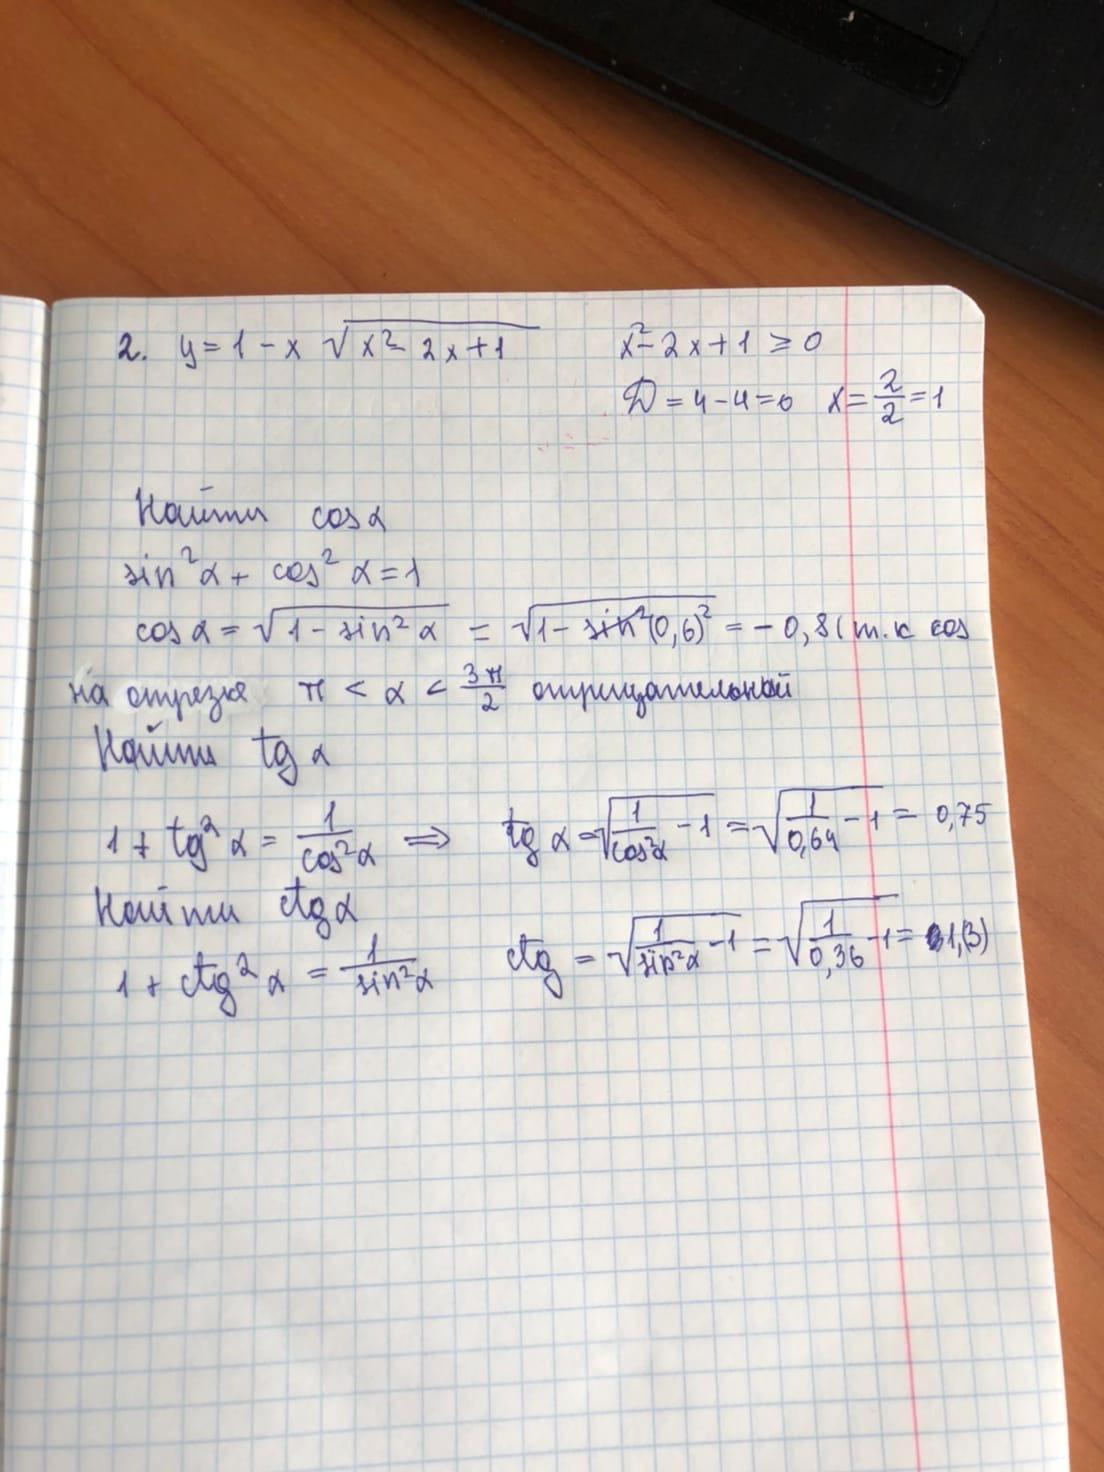 2. y = 1 - x √(x² - 2x + 1) x² - 2x + 1 ≥ 0
D = 4 - 4 = 0 x = 2/2 = 1
Найти cos α
sin² α + cos² α = 1
cos α = √(1 - sin² α) = √(1 - (0,6)²) = - 0,8 (т.к cos
на отрезке π < α < 3π/2 отрицательный
Найти tg α
1 + tg² α = 1/cos² α ⇒ tg α = √(1/cos² α - 1) = √(1/0,64 - 1) = 0,75
Найти ctg α
1 + ctg² α = 1/sin² α ctg = √(1/sin² α - 1) = √(1/0,36 - 1) = 1,(3)